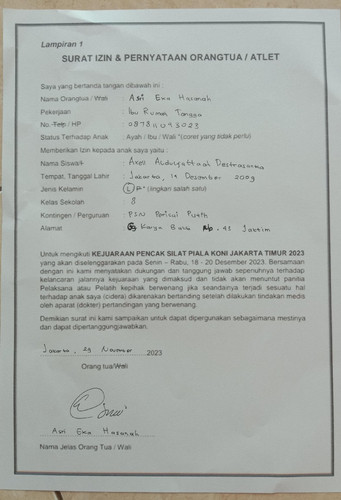 Lampiran 1
SURAT IZIN & PERNYATAAN ORANGTUA / ATLET
Saya yang bertanda tangan dibawah ini :
Nama Orangtua / Wali : Asri Eka Hasanah
Pekerjaan : Ibu Rumah Tangga
No. Telp / HP :
Status Terhadap Anak : Ayah / Ibu / Wali *(coret yang tidak perlu)
Memberikan Izin kepada anak saya yaitu :
Nama Siswa/i :
Tempat, Tanggal Lahir : Jakarta, 14 Desember 2009
Jenis Kelamin : L/P* (lingkari salah satu)
Kelas Sekolah : 8
Kontingen / Perguruan : PSN Perisai Putih
Alamat : Karya Bakti No. 41 Jaktim
Untuk mengikuti KEJUARAAN PENCAK SILAT PIALA KONI JAKARTA TIMUR 2023
yang akan diselenggarakan pada Senin – Rabu, 18 - 20 Desember 2023. Bersamaan
dengan ini kami menyatakan dukungan dan tanggung jawab sepenuhnya terhadap
kelancaran jalannya kejuaraan yang dimaksud dan tidak akan menuntut panitia
Pelaksana atau Pelatih kepihak berwenang jika seandainya terjadi sesuatu hal
terhadap anak saya (cidera) dikarenakan bertanding setelah dilakukan tindakan medis
oleh aparat (dokter) pertandingan yang berwenang.
Demikian surat ini kami sampaikan untuk dapat dipergunakan sebagaimana mestinya
dan dapat dipertanggungjawabkan.
Jakarta, 29 November 2023
Orang tua/Wali
Asri Eka Hasanah
Nama Jelas Orang Tua / Wali